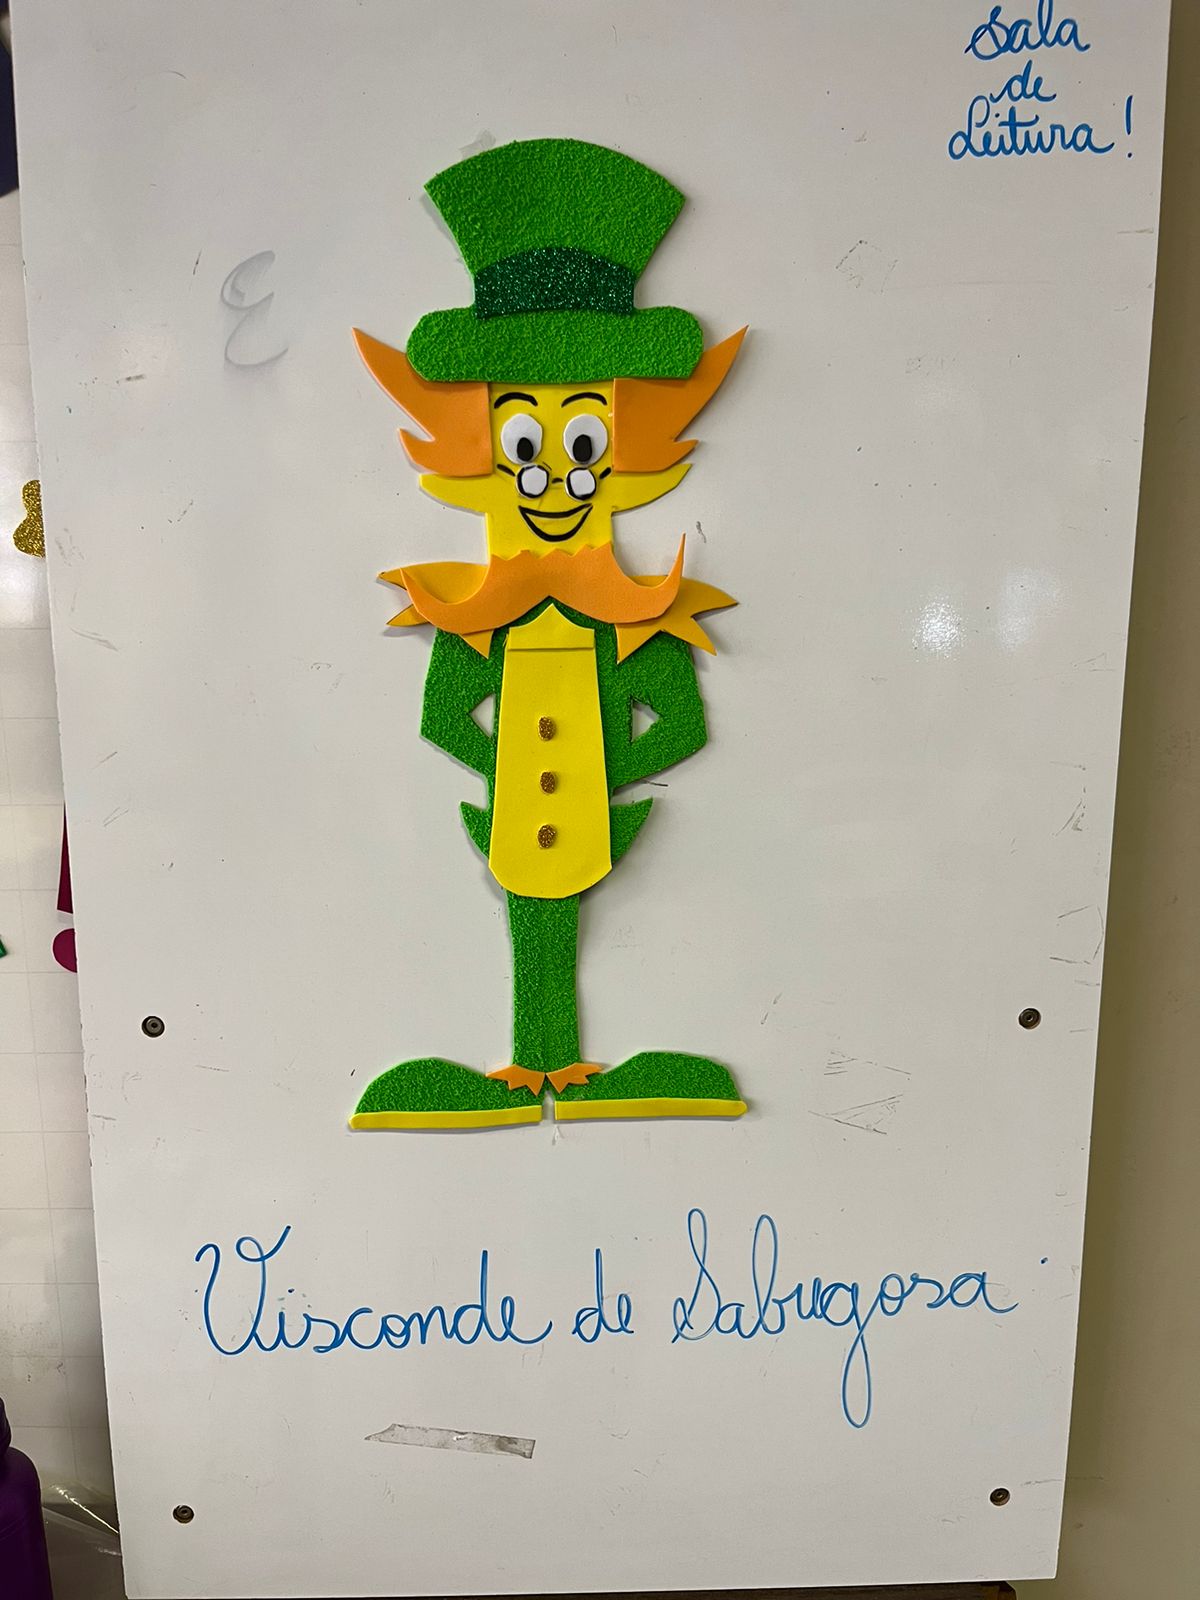 Sala
de
Leitura!
E
Visconde de Sabugosa